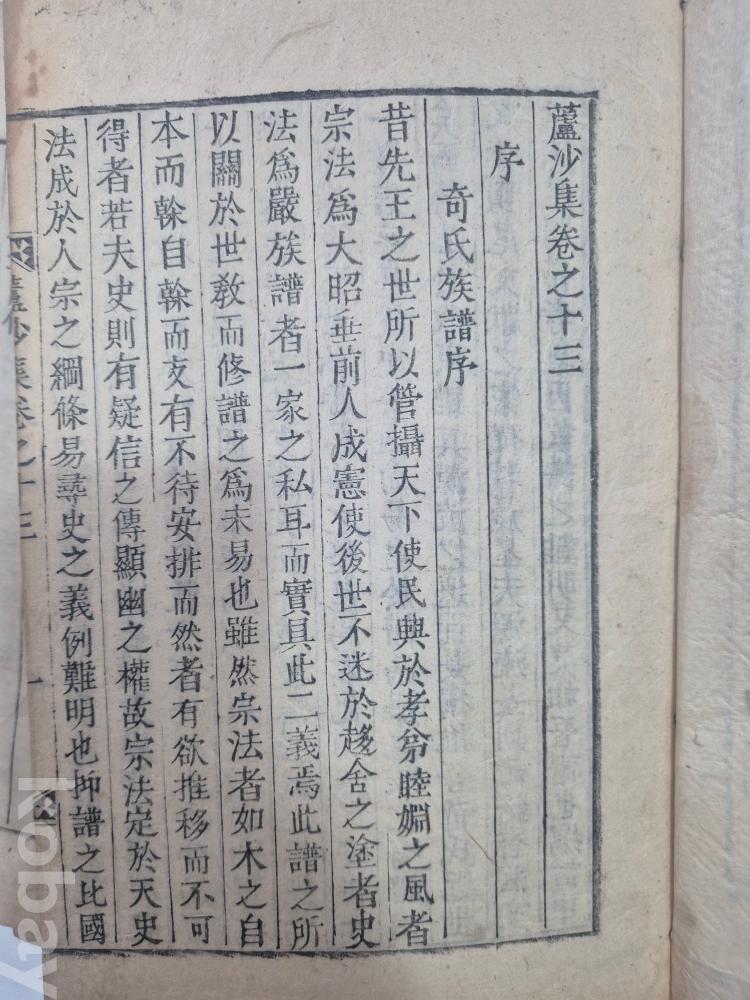 蘆沙集卷之十三
序
奇氏族譜序
昔先王之世所以管攝天下使民興於孝弟睦婣之風者
宗法爲大昭垂前人成憲使後世不迷於趍舍之塗者史
法爲嚴族譜者一家之私耳而實具此二義焉此譜之所
以關於世敎而修譜之爲未易也雖然宗法者如木之自
本而榦自榦而支有不待安排而然者有欲推移而不可
得者若夫史則有疑信之傳顯幽之權故宗法定於天史
法成於人宗之綱條易尋史之義例難明也抑譜之比國
蘆沙集卷之十三
一
kobay